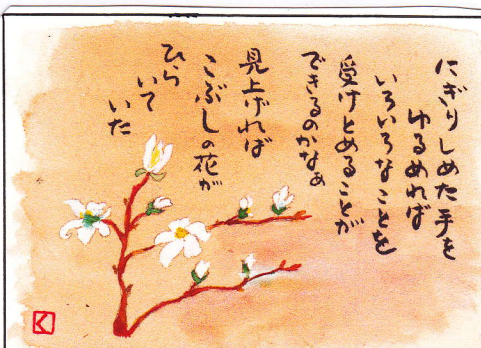 にぎりしめた手を
ゆるめれば
いろいろなことを
受けとめることが
できるのかなぁ
見上げれば
こぶしの花が
ひら
いて
いた